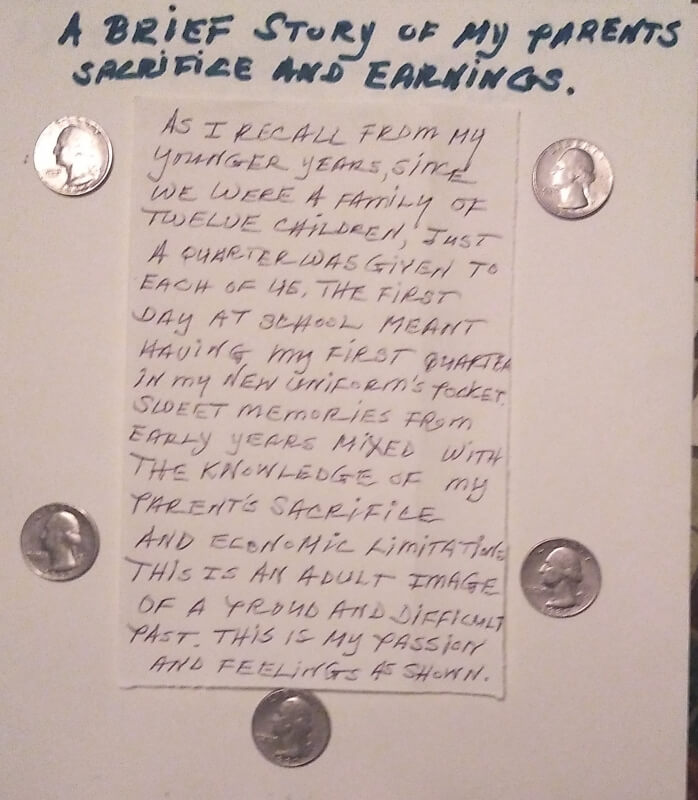 A BRIEF STORY OF MY PARENTS
SACRIFICE AND EARNINGS.
AS I RECALL FROM MY
YOUNGER YEARS, SINCE
WE WERE A FAMILY OF
TWELVE CHILDREN, JUST
A QUARTER WAS GIVEN TO
EACH OF US. THE FIRST
DAY AT SCHOOL MEANT
HAVING MY FIRST QUARTER
IN MY NEW UNIFORM'S POCKET.
SWEET MEMORIES FROM
EARLY YEARS MIXED WITH
THE KNOWLEDGE OF MY
PARENT'S SACRIFICE
AND ECONOMIC LIMITATIONS
THIS IS AN ADULT IMAGE
OF A PROUD AND DIFFICULT
PAST. THIS IS MY PASSION
AND FEELINGS AS SHOWN.